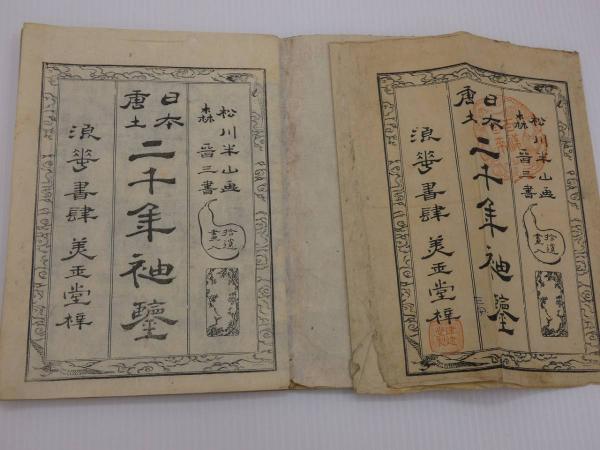 松川半山画
森晋三書
拾遺
画人
日本
唐土
二千年袖鑒
浪華書肆 美玉堂梓
松川半山画
森晋三書
拾遺
画人
日本
唐土
二千年袖鑒
浪華書肆 美玉堂梓